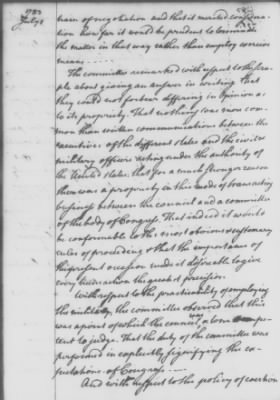 1783
July 1
chain of negotiation and that it merited considera-
tion how far it would be prudent to terminate
the matter in that way rather than employ coercive
means
The committee remarked with respect to the scru-
ple about giving an answer in writing that
they could not forbear differing in opinion as
to its propriety. That nothing was more com-
mon than written communications between the
executives of the different states and the civil &
military officers acting under the authority of
the United states; that for a much stronger reason
there was a propriety in this mode of transacting
business between the council and a committee
of the body of Congress. That indeed it would
be conformable to the most obvious & customary
rules of proceeding & that the importance of
the present occasion made it adviseable to give
every transaction the greatest precision
With respect to the practicability of employing
the militia the committee observed that this
was a point of which the council was alone compe-
tent to judge. That the duty of the committee was
performed in explicitly signifying the ex-
pectations of Congress
And with respect to the policy of coercion